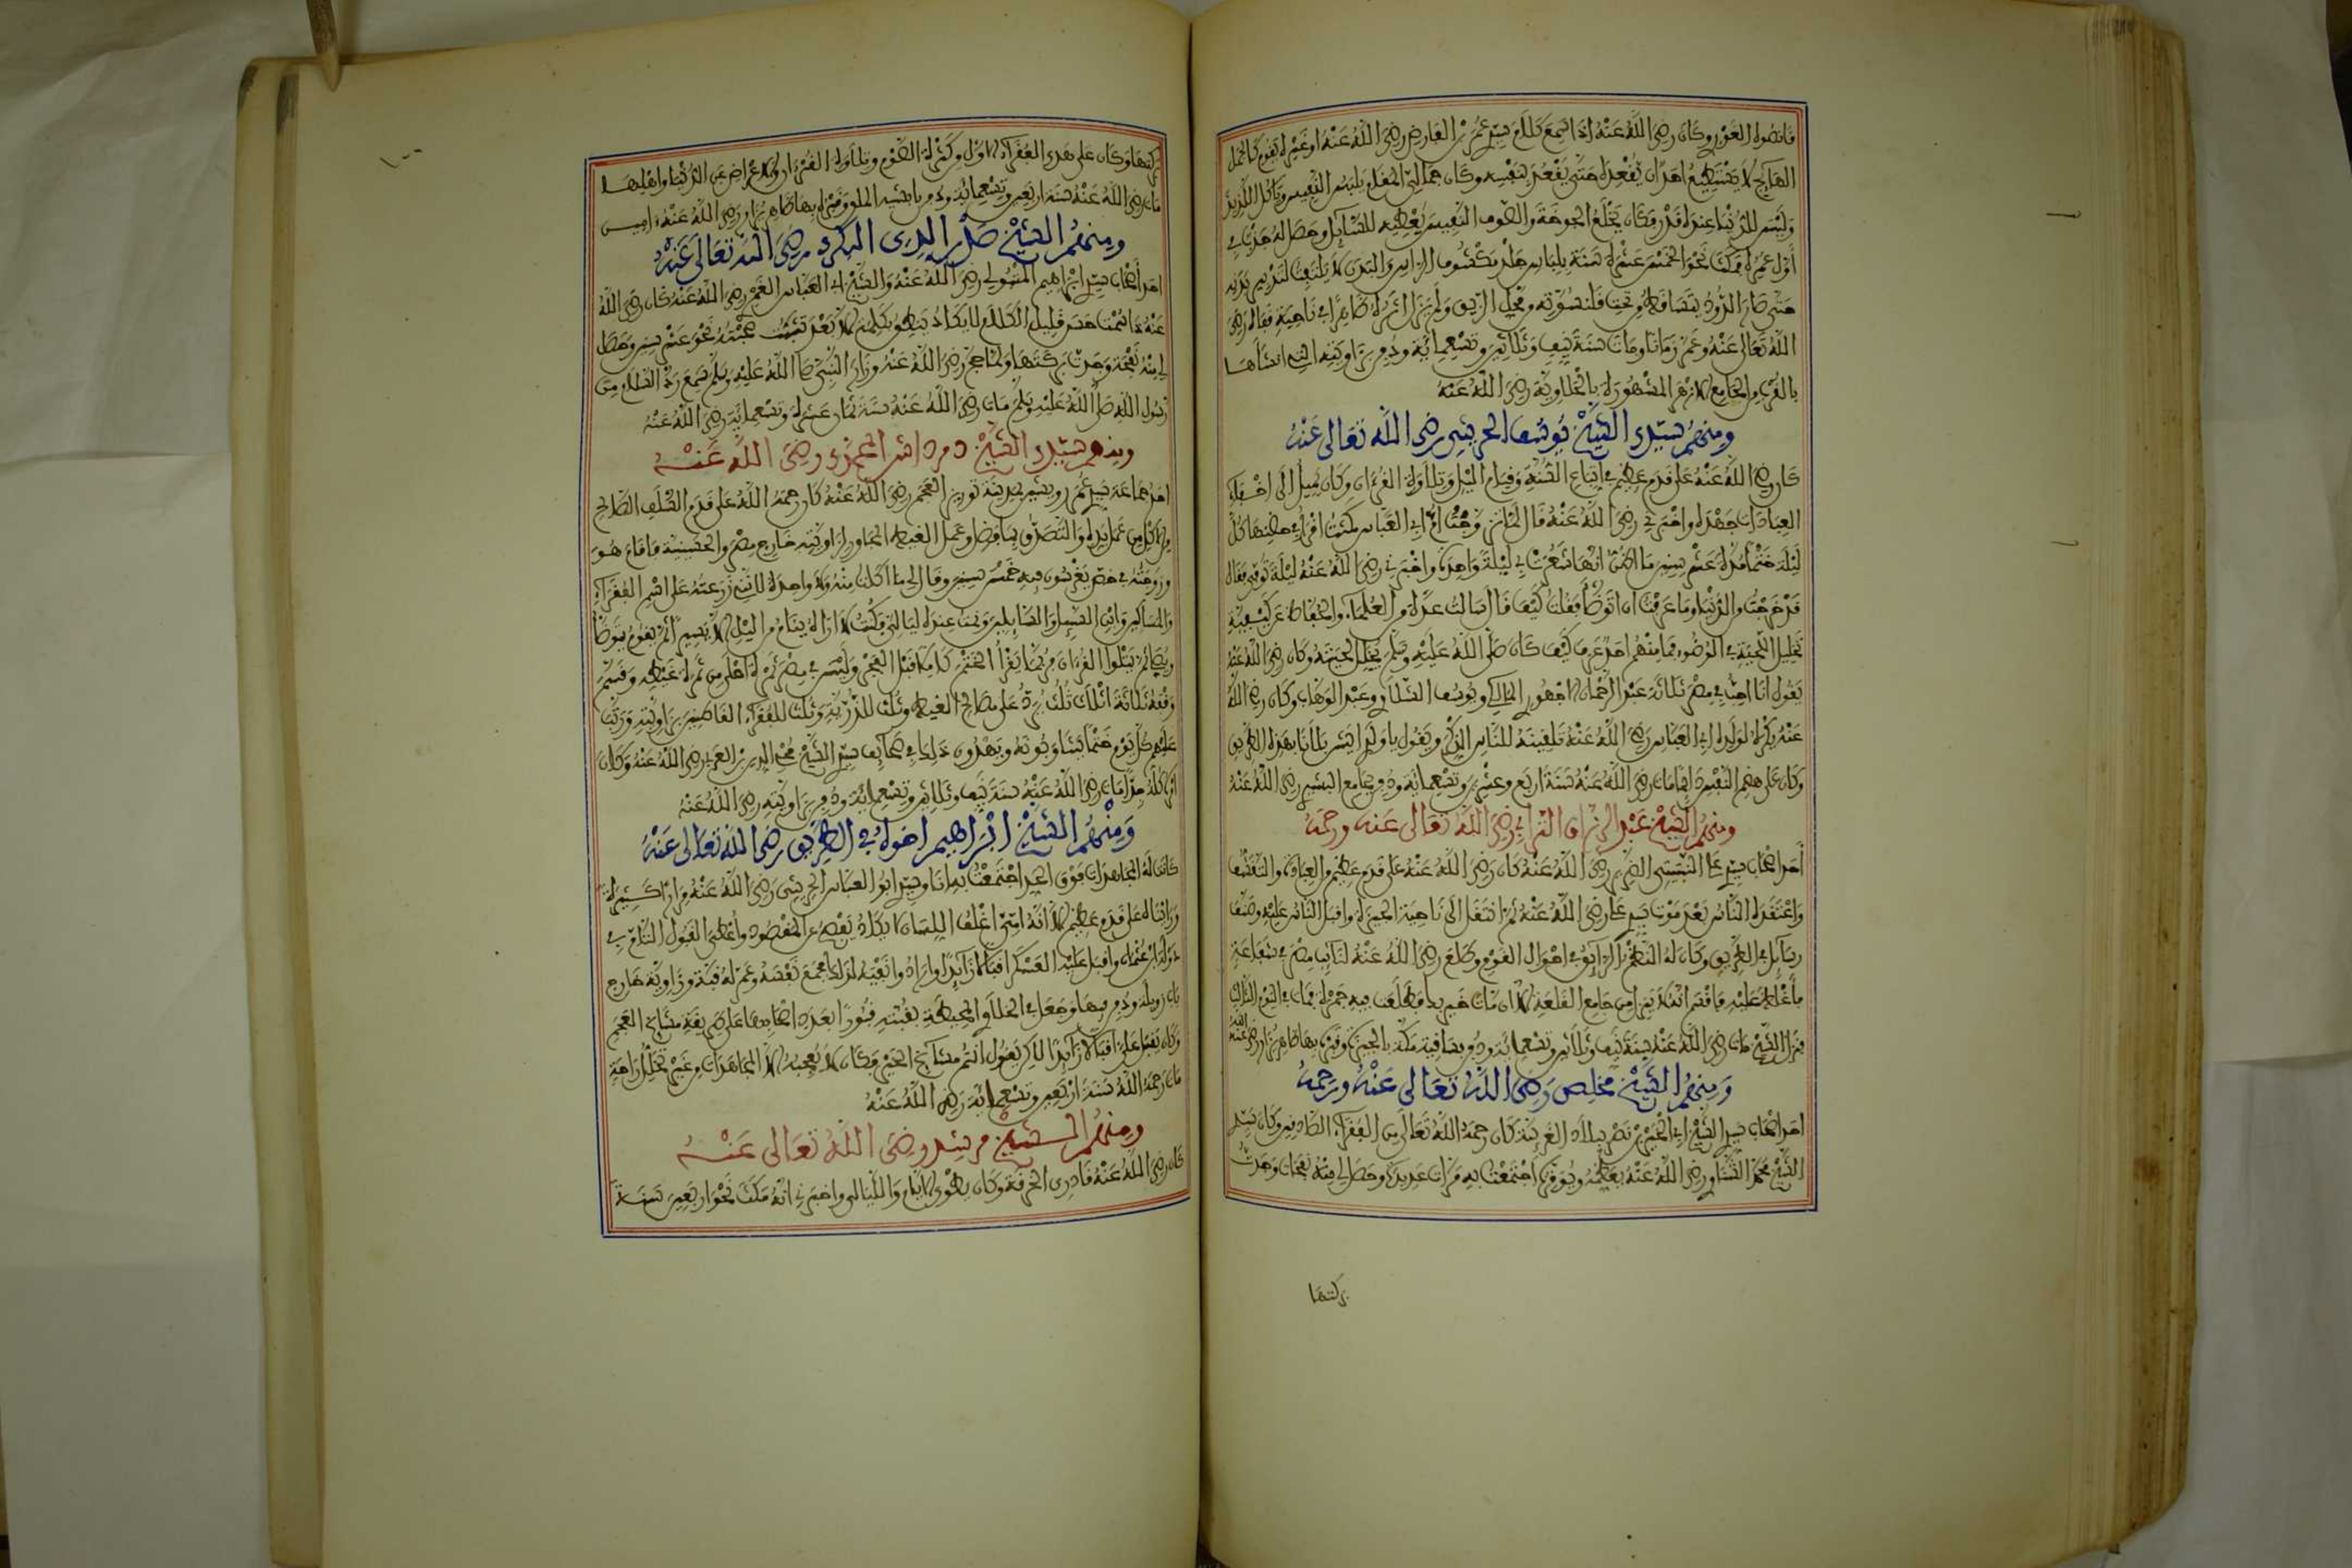 فانصوه الغوري وكان رضي الله عنه إذا سمع كلام سيدي عمر بن الفارض رضي الله عنه أو غيره يقوم كالجمل
الهايج لا يستطيع أحد أن يقعده حتى يقعد بنفسه وكان جمالي المقام يلبس النفيس ويأكل اللذيذ
وليس للدنيا عنده قدر فكان يخلع الجوخة والصوف النفيس يعطيه للسائل وحصل له جذب في
أول عمره فمكث نحو الخمس عشرة سنة بلباس جلد مكشوف الرأس والبدن لا يلتفت لتدبير بدنه
حتى صار الدود يتساقط من تحت قلنسوته ومحل الزيق ولم يزل أثره ظاهرا في ناحية قفاه رضي
الله تعالى عنه وعمر زمانا ومات سنة نيف وثلاثين وتسعمائة ودفن بزاويته التي أنشأها
بالقرب من الجامع الأزهر المشهورة بالحلاوية رضي الله عنه
ومنهم سيدي الشيخ يوسف الحريثي رضي الله تعالى عنه
كان رضي الله عنه على قدم عظيم في اتباع السنة وقيام الليل وتلاوة القرءان وكان يميل إلى إخفاء
العبادات جهده وأخبرني رضي الله عنه قال لما تزوجت أم أبي العباس مكثت أقرأ في حضنها كل
ليلة ختما مدة عشر سنين ما أظن أنها شعرت بي ليلة واحدة وأخبرني رضي الله عنه ليلة توفي فقال
قد خرجت من الدنيا وما عرفت أن أتوضأ فقلت كيف قال سألت عدة من العلماء والحفاظ عن كيفية
تخليل اللحية في الوضوء فما منهم أحد عرف كيف كان صلى الله عليه وسلم يخلل لحيته وكان رضي الله عنه
يقول أنا أحب في مصر ثلاثة عبد الرحمان الأجهوري المالكي ويوسف وعبد الوهاب وكان رضي الله
عنه يكره لولده أبي العباس رضي الله عنه تلقينه للناس الذكر ويقول يا ولدي إيش بلانا بهذه الطريق
وكان على هضم النفس دائما مات رضي الله عنه سنة أربع وعشرين وتسعمائة ودفن بجامع البشيري رضي الله عنه
ومنهم الشيخ عبد الرزاق الترابي رضي الله تعالى عنه ورحمه
أحد أصحاب سيدي علي النبتيتي الضرير رضي الله عنه كان رضي الله عنه على قدم عظيم من العبادة والتقشف
واعتقده الناس بعد موت سيدي علي رضي الله عنه ثم انتقل إلى ناحية الجيزة وأقبل الناس عليه وصنف
رسائل في الطريق وكان له النظم الرائق في أحوال القوم وطلع رضي الله عنه لنائب مصر في شفاعة
فأغلظ عليه فأقسم أنه لا ينزل من جامع القلعة إلا إن مات خير بك فطلعت فيه جمرة فمات في اليوم الثالث
فنزل الشيخ مات رضي الله عنه سنة نيف وثلاثين وتسعمائة ودفن بساقية مكة بالجيزة وقبره بها ظاهر يزار رضي الله عنه
ومنهم الشيخ مخلص رضي الله تعالى عنه ورحمه
أحد أصحاب سيدي الشيخ أبي الخير بن نصر ببلاد الغربية كان رحمه الله تعالى من الفقراء الصادقين وكان سيدي
الشيخ محمد الشناوي رضي الله عنه يعظمه ويوقره اجتمعت به مرات عديدة وحصل لي منه نفحات وجدت
بركتها
بركتها وكان على هدي الفقراء الأول وكثرة الصوم وتلاوة القرءان والإعراض عن الدنيا وأهلها
مات رضي الله عنه سنة أربعين وتسعمائة ودفن بابشيه الملق وقبره بها ظاهر يزار رضي الله عنه ءامين
ومنهم الشيخ صدر الدين البكري رضي الله تعالى عنه
أحد أصحاب سيدي إبراهيم المتبولي رضي الله عنه والشيخ أبي العباس الغمري رضي الله عنه كان رضي الله
عنه ذا سمت حسن قليل الكلام لا يكاد ينطق بكلمة إلا بعد تثبت صحبته نحو عشر سنين وحصل
لي منه نفحة وجدت بركتها ولما حج رضي الله عنه وزار النبي صلى الله عليه وسلم سمع رد السلام من
رسول الله صلى الله عليه وسلم مات رضي الله عنه سنة ثمان عشرة وتسعمائة رضي الله عنه
ومنهم سيدي الشيخ دمرداش المحمدي رضي الله عنه
أحد جماعة سيدي عمر رويشين بمدينة توريز العجم رضي الله عنه كان رحمه الله على قدم السلف الصالح
من الأكل من عمل يده والتصدق بما فضل وعمل الغيط المجاور لزاويته خارج مصر والحسينية فأقام هو
وزوجته في خص يغرسون فيه خمس سنين وقال لي ما أكلت منه ولا واحدة لأني زرعته على اسم الفقراء
والمساكين وابن السبيل والسائلين ونمت عنده ليالي فكنت لا أراه ينام من الليل إلا يسير ثم يقوم يتوضأ
ويصلي ثم يتلو القرءان فربما يقرأ الختم كاملا قبل الفجر وليس في مصر ثمرة أحلى من ثمرة غيطه وقسم
وقفه ثلاثة أثلاث ثلث يرد على مصالح الغيط وثلث للذرية وثلث للفقراء القاطنين بزاويته ورتب
عليهم كل يوم ختما يتناوبونه ويهدون ذلك في صحائف سيدي الشيخ محيي الدين بن العربي رضي الله عنه وكان
أمره كله جدا مات رضي الله عنه سنة نيف وثلاثين وتسعمائة ودفن بزاويته رضي الله عنه
ومنهم الشيخ إبراهيم أخوه في الطريق رضي الله تعالى عنه
كانت له المجاهدات فوق الحد اجتمعت به أنا وسيدي أبو العباس الحريثي رضي الله عنه مرارا كثيرة
ورأيناه على قدم عظيم إلا أنه أمي أغلف اللسان لا يكاد يفصح عن المقصود وأعطي القبول التام في
دولة ابن عثمان وأقبل عليه العسكر إقبالا زائدا وأرادوا نفيه لذلك فجمع نفسه وعمر له قبة وزاوية خارج
باب زويلة ودفن فيها وجعل في الخلاوي المحيطة بقبته قبورا بعدد أصحابه على طريقة مشايخ العجم
وكان يقبل علي إقبالا زائدا لكن يقول أنتم مشايخ الخير فكان لا يعجبه إلا المجاهدات من غير تخلل راحة
مات رحمه الله سنة أربعين وتسعمائة رضي الله عنه
ومنهم الشيخ مرشد رضي الله تعالى عنه
كان رضي الله عنه قادري الخرقة وكان يطوي الأيام والليالي وأخبرني أنه مكث نحو أربعين سنة